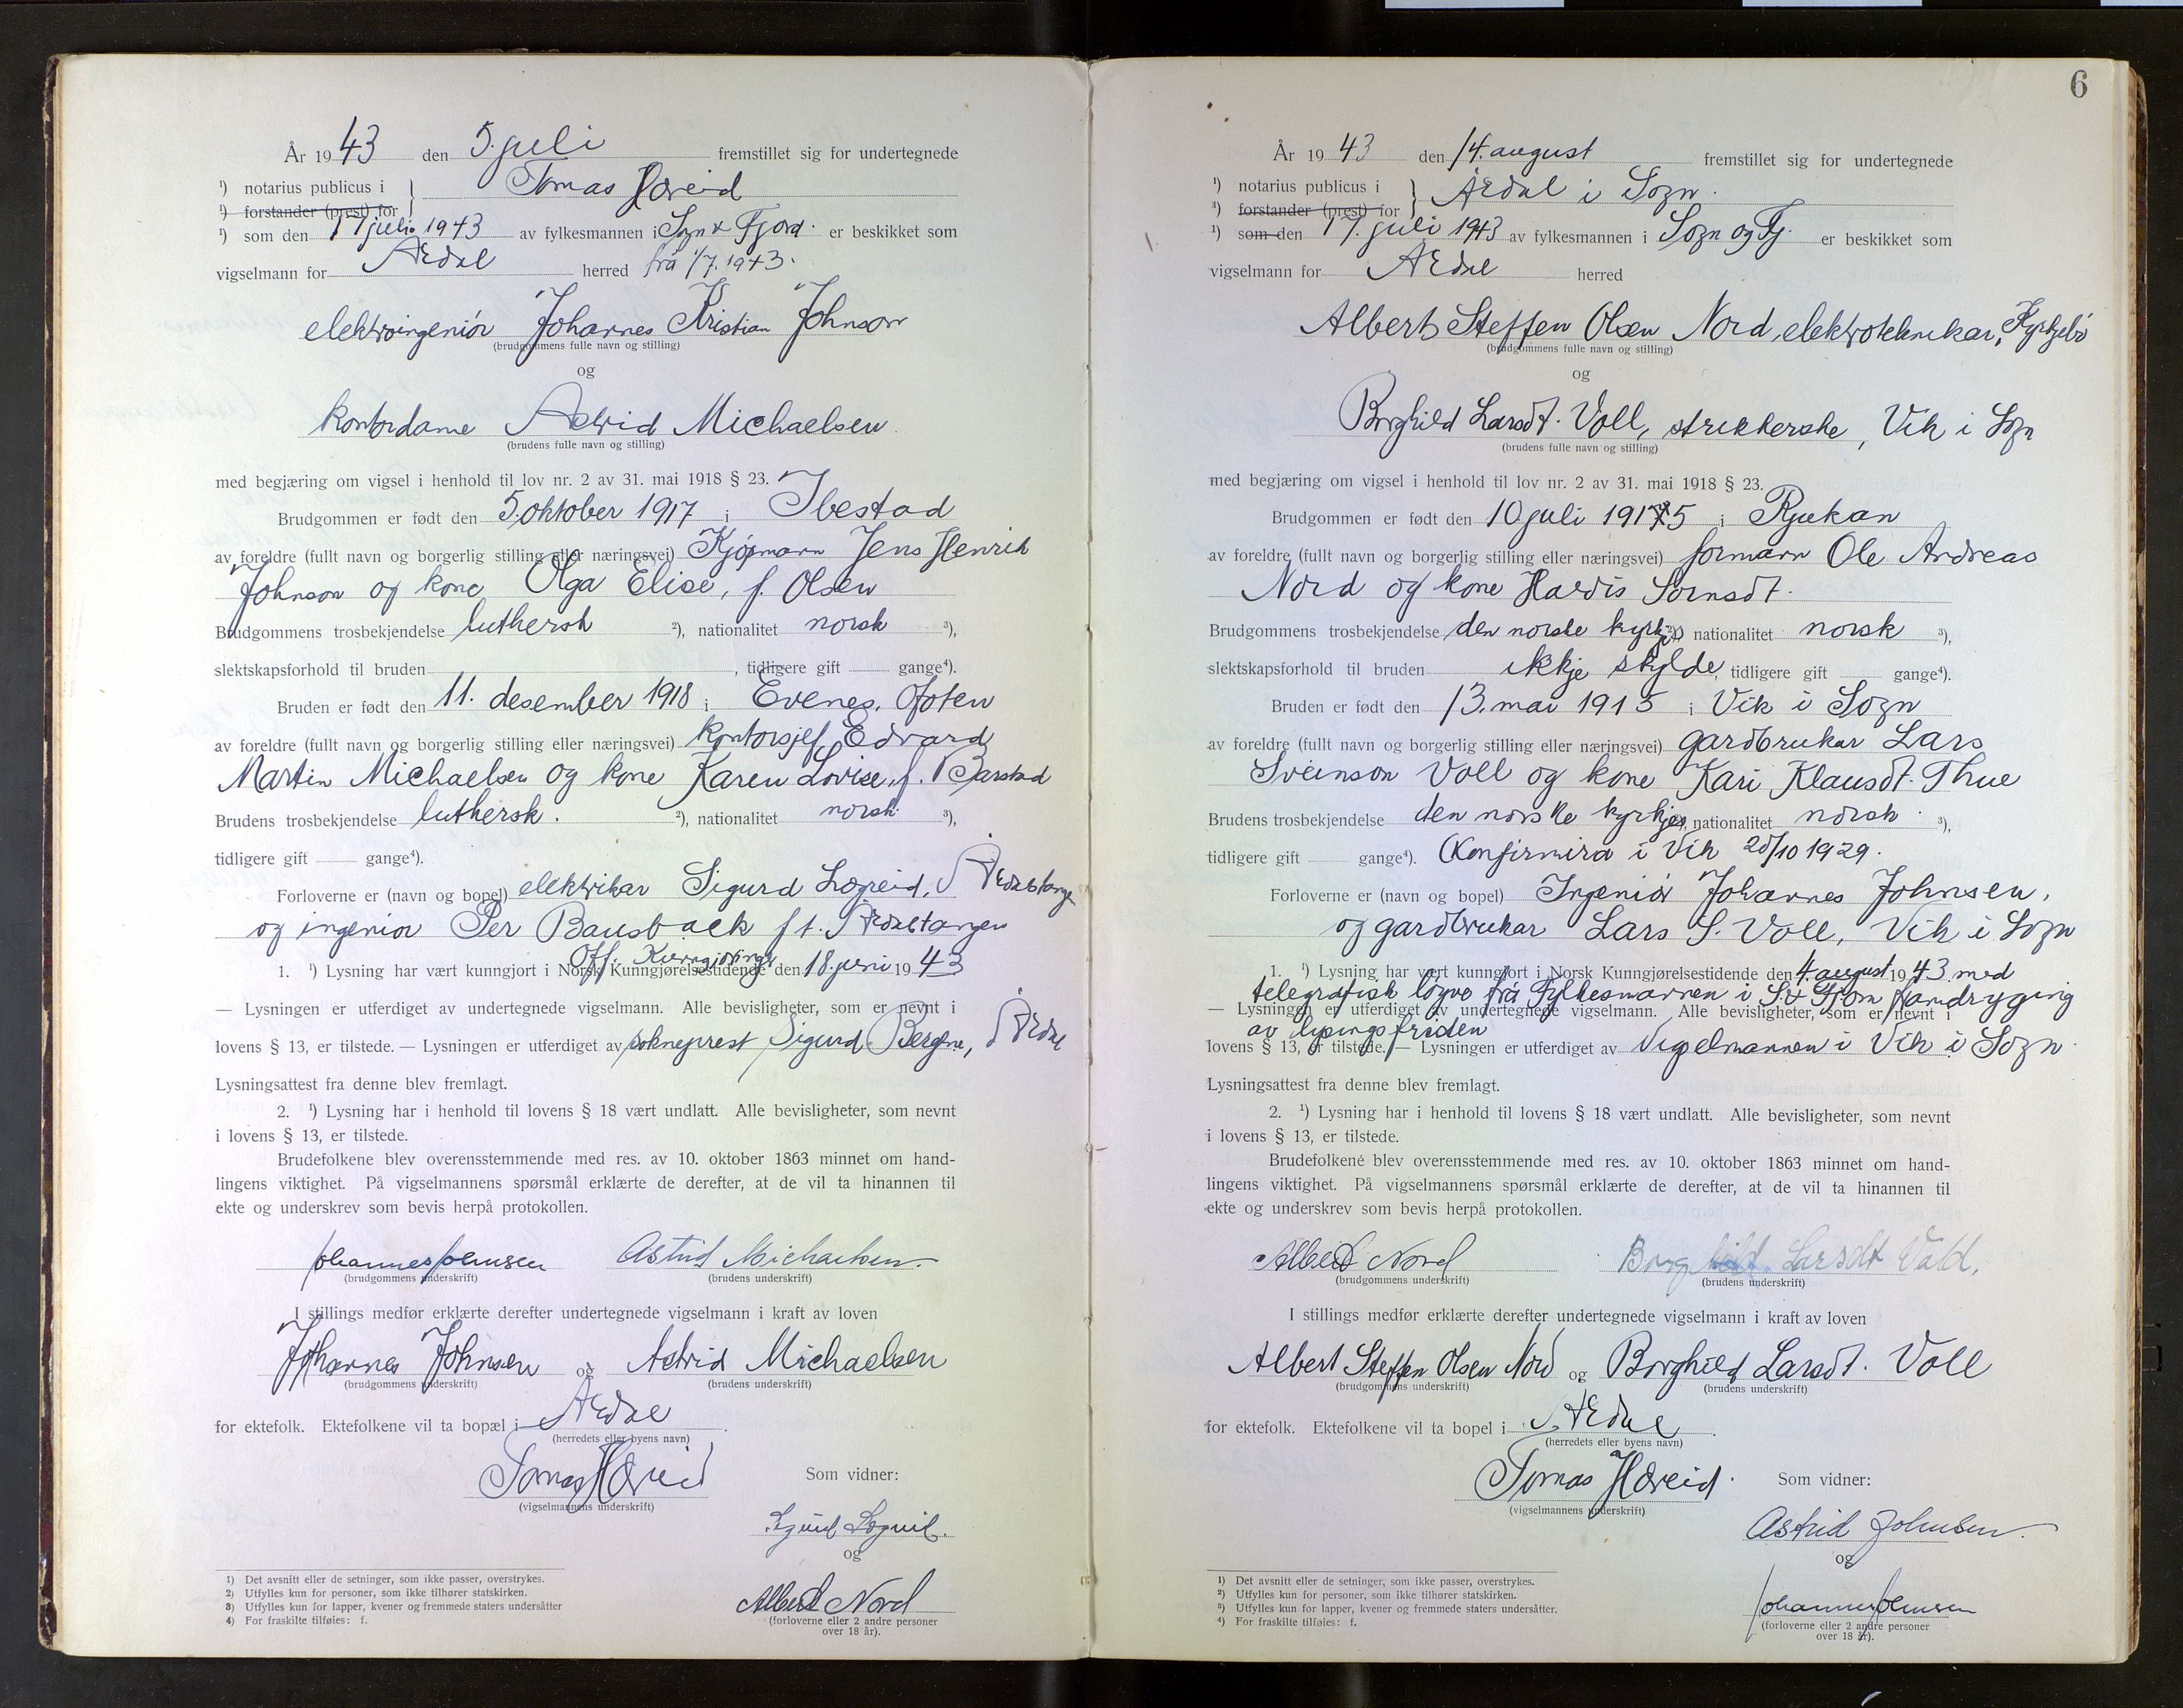 År 1943 den 5. juli fremstillet sig for undertegnede
¹) notarius publicus i } Tomas Hæreid
¹) forstander (prest) for
¹) som den 17 juli 1943 av fylkesmannen i Sogn & Fjord. er beskikket som
vigselmann for Årdal herred frå 1/7. 1943.
elektroingeniör Johannes Kristian Johnson
(brudgommens fulle navn og stilling)
og
kontordame Astrid Michaelsen
(brudens fulle navn og stilling)
med begjæring om vigsel i henhold til lov nr. 2 av 31. mai 1918 § 23.
Brudgommen er født den 5. oktober 1917 i Ibestad
av foreldre (fullt navn og borgerlig stilling eller næringsvei) Kjøpmann Jens Henrik
Johnson og kone Olga Elise, f. Olsen
Brudgommens trosbekjendelse luthersk ²), nationalitet norsk ³),
slektskapsforhold til bruden , tidligere gift gange⁴).
Bruden er født den 11. desember 1918 i Evenes, Ofoten
av foreldre (fullt navn og borgerlig stilling eller næringsvei) kontorsjef Edvard
Martin Michaelsen og kone Karen Lovise, f. Barstad
Brudens trosbekjendelse luthersk. ²), nationalitet norsk ³),
tidligere gift gange⁴).
Forloverne er (navn og bopel) elektrikar Sigurd Lægreid, Årdalstangen
og ingeniör Per Bausback f t. Årdalstangen
Off. Kunngjörings
1. ¹) Lysning har vært kunngjort i Norsk Kunngjørelsestidende den 18. juni 1943
— Lysningen er utferdiget av undertegnede vigselmann. Alle bevisligheter, som er nevnt i
lovens § 13, er tilstede. — Lysningen er utferdiget av sokneprest Sigurd Bergne, i Årdal
Lysningsattest fra denne blev fremlagt.
2. ¹) Lysning har i henhold til lovens § 18 vært undlatt. Alle bevisligheter, som nevnt
i lovens § 13, er tilstede.
Brudefolkene blev overensstemmende med res. av 10. oktober 1863 minnet om hand-
lingens viktighet. På vigselmannens spørsmål erklærte de derefter, at de vil ta hinannen til
ekte og underskrev som bevis herpå protokollen.
Johannes Johnsen Astrid Michaelsen
(brudgommens underskrift) (brudens underskrift)
I stillings medfør erklærte derefter undertegnede vigselmann i kraft av loven
Johannes Johnsen og Astrid Michaelsen
(brudgommens underskrift) (brudens underskrift)
for ektefolk. Ektefolkene vil ta bopæl i Årdal .
(herredets eller byens navn)
Tomas Hæreid Som vidner:
(vigselmannens underskrift)
Sigurd Lægreid.
og
Albert Nord
(forloverne eller 2 andre personer
over 18 år).
1) Det avsnitt eller de setninger, som ikke passer, overstrykes.
2) Utfylles kun for personer, som ikke tilhører statskirken.
3) Utfylles kun for lapper, kvener og fremmede staters undersåtter
4) For fraskilte tilføies: f.
6
År 1943 den 14. august fremstillet sig for undertegnede
¹) notarius publicus i } Årdal i Sogn.
¹) forstander (prest) for
¹) som den 17. juli 1943 av fylkesmannen i Sogn og Fj. er beskikket som
vigselmann for Årdal herred
Albert Steffen Olsen Nord, elektroteknikar, Kyrkjebö
(brudgommens fulle navn og stilling)
og
Borghild Larsdt. Voll, strikkerske, Vik i Sogn
(brudens fulle navn og stilling)
med begjæring om vigsel i henhold til lov nr. 2 av 31. mai 1918 § 23.
Brudgommen er født den 10 juli 1915 i Rjukan
av foreldre (fullt navn og borgerlig stilling eller næringsvei) formann Ole Andreas
Nord og kone Hardis
Brudgommens trosbekjendelse den norske kyrkje ²), nationalitet norsk ³),
slektskapsforhold til bruden ikkje skylde, tidligere gift gange⁴).
Bruden er født den 13. mai 1915 i Vik i Sogn
av foreldre (fullt navn og borgerlig stilling eller næringsvei) gardbrukar Lars
Sveinson Voll og kone Kari Klausdt. Thue
Brudens trosbekjendelse den norske kyrkje, nationalitet norsk ³),
tidligere gift gange⁴). Konfirmira i Vik 20/10 1929.
Forloverne er (navn og bopel) Ingeniör Johannes Johnsen,
og gardbrukar Lars S. Voll, Vik i Sogn
1. ¹) Lysning har vært kunngjort i Norsk Kunngjørelsestidende den 4. august 1943 med
telegrafisk löyve frå Fylkesmannen i S. & Fj. om framdryging
— Lysningen er utferdiget av undertegnede vigselmann. Alle bevisligheter, som er nevnt i
av lysingsfristen
lovens § 13, er tilstede. — Lysningen er utferdiget av Vigselmannen i Vik i Sogn
Lysningsattest fra denne blev fremlagt.
2. ¹) Lysning har i henhold til lovens § 18 vært undlatt. Alle bevisligheter, som nevnt
i lovens § 13, er tilstede.
Brudefolkene blev overensstemmende med res. av 10. oktober 1863 minnet om hand-
lingens viktighet. På vigselmannens spørsmål erklærte de derefter, at de vil ta hinannen til
ekte og underskrev som bevis herpå protokollen.
Albert Nord Borghild Larsdt Vold.
(brudgommens underskrift) (brudens underskrift)
I stillings medfør erklærte derefter undertegnede vigselmann i kraft av loven
Albert Steffen Olsen Nord og Borghild Larsdt. Voll
(brudgommens underskrift) (brudens underskrift)
for ektefolk. Ektefolkene vil ta bopel i Årdal .
(herredets eller byens navn)
Tomas Hæreid. Som vidner:
(vigselmannens underskrift)
Astrid Johnsen.
og
Johannes Johnsen
(forloverne eller 2 andre personer
over 18 år).
¹) Det avsnitt eller de setninger, som ikke passer, overstrykes.
²) Utfylles kun for personer, som ikke tilhører statskirken.
³) Utfylles kun for lapper, kvener og fremmede staters undersåtter.
⁴) For fraskilte tilføies: f.